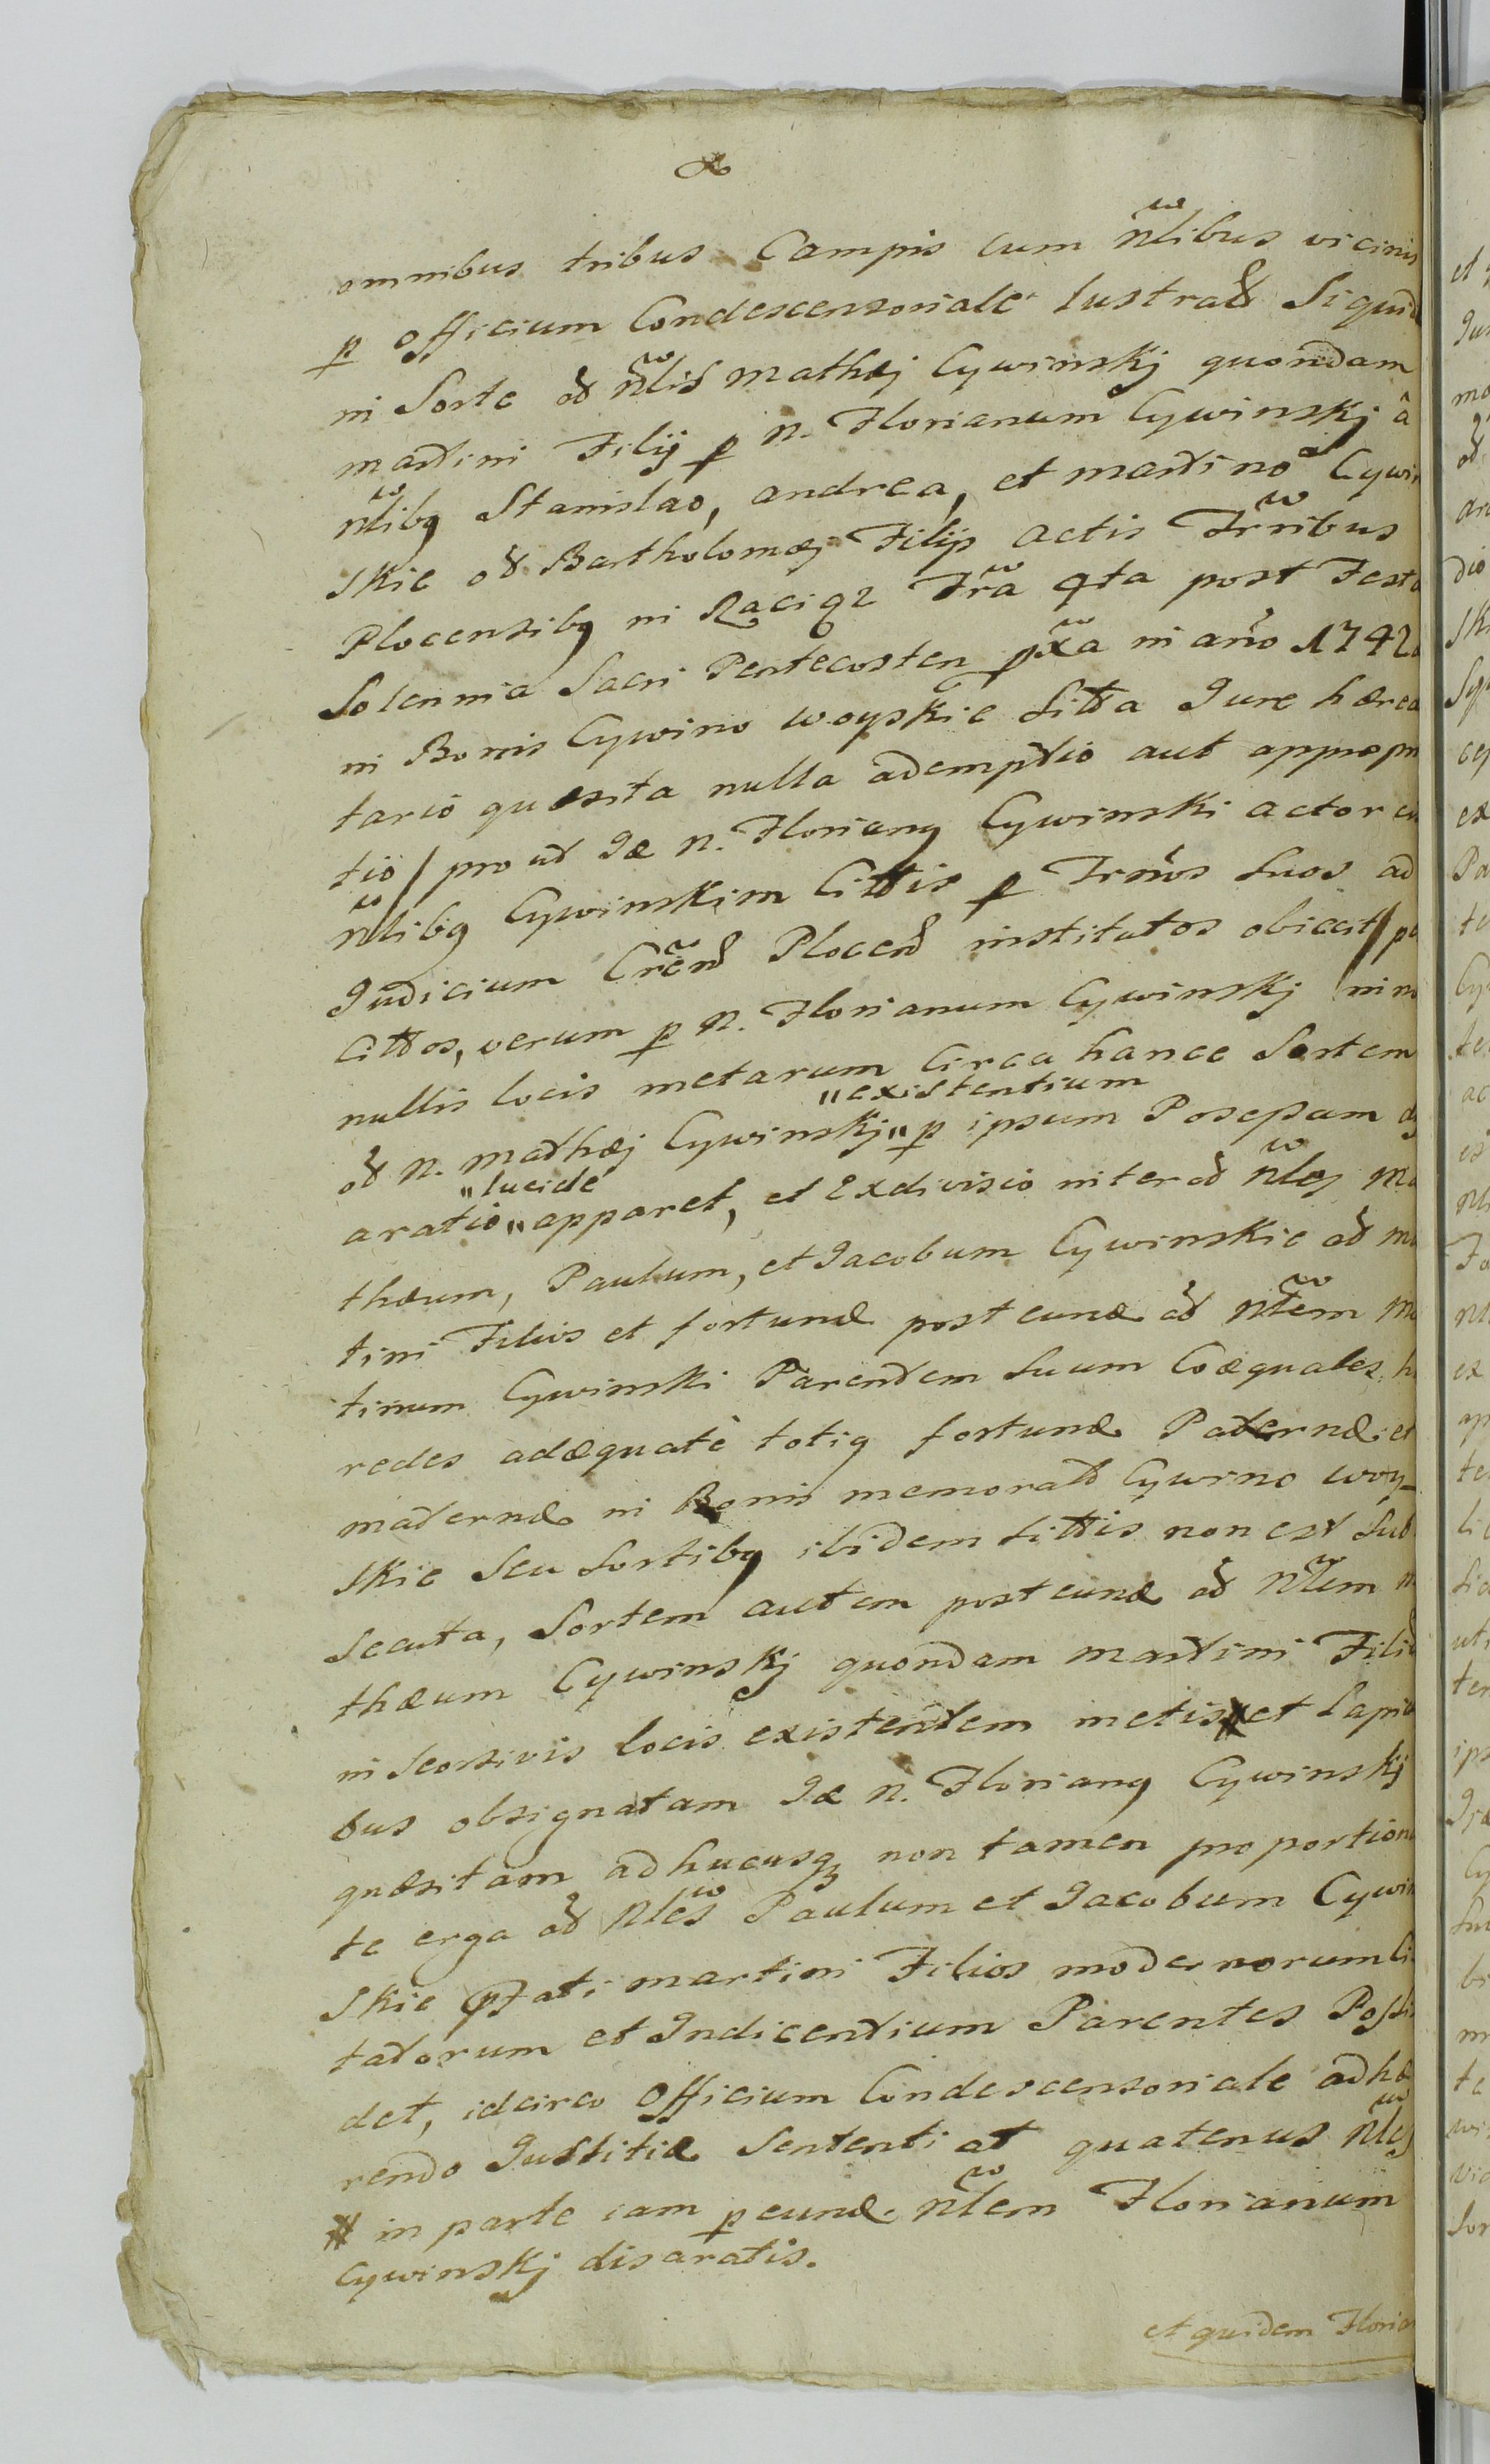 omnibus tribus Campis cum Nlibus vicinis
p Officium Condescensoriale lustratt Siquid
in Sorte ott Nlis Mathæj Cywinskj quondam
Martini Filij p N. Florianum Cywinskj â
Nlibq Stanislao, Andrea, et Martino Cywin
skie ott Bartholomæj Filijs Actis Trribus
Plocensibq in Raciąz Fria 4ta post Festa
Solennia Sacri Pentecosten pxa in año 1742
in Bonis Cywino Woyskie Sitta Jure hæred
tario quæsita nulla ademptio aut appropri
tio / pro ut Iæ N. Florianq Cywinski Actor
Nlibq Cywinskim Cittis p Trnos Suos ad
Judicium Crēn Plocen institutos obiecit /
Cittos, verum p N. Florianum Cywinskj in
nullis locis metarum Circa hancce Sortem
"existentium
ott N. Mathæj Cywinskj" p ipsum Posessam
"lucide
aratio" apparet, et Exdivisio inter ott Nles Ma
thæum, Paulum, et Jacobum Cywinskie ott
tini Filios et fortunæ post eunde ott Nlem Ma
tinum Cywinski Parentem Suum Coæquales hæ
redes adæquatè totiq fortunæ Paternæ et
maternæ in Bonis memoratt Cywino Woy-
skie Seu Sortibq ibidem Sittis non est Sub
Secuta, Sortem autem post eunde ott Nlem
thæum Cywinskj quondam Martini Filiu
in Seorsivis locis existentem metis # et Lapid
bus obsignatam Iæ N. Florianq Cywinskj
quæsitam adhucusq non tamen proportiona
te erga ott Nles Paulum et Jacobum Cywin
skie pfati Martini Filios modernorum Ci
tatorum et Indicentium Parentes Possi
det, idcirco Officium Condescensoriale adhæ
rendo Justitiæ Sententiat quatenus Nles
# in parte iam p eunde Nlem Florianum
Cywinskj disaratis.
et quidem Florian